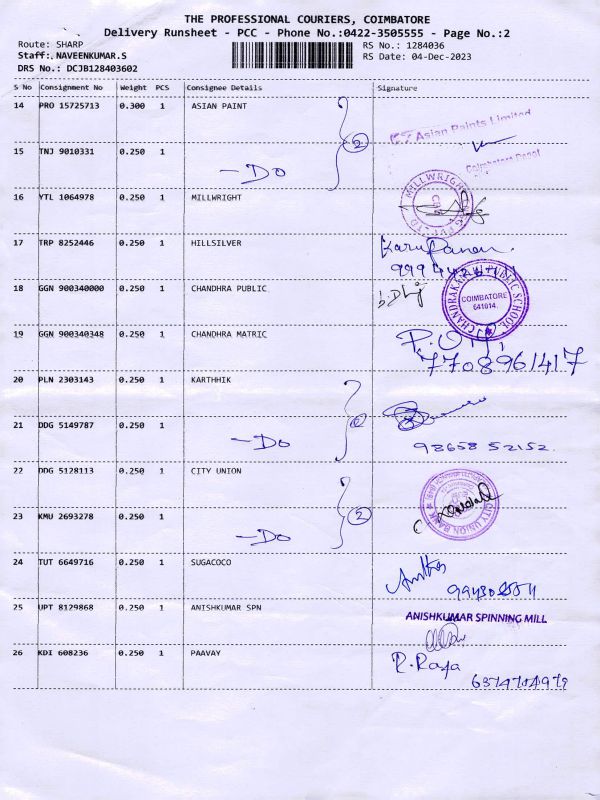 THE PROFESSIONAL COURIERS, COIMBATORE
Delivery Runsheet - PCC - Phone No.:0422-3505555 - Page No.:2
Route: SHARP RS No.: 1284036
Staff: NAVEENKUMAR.S RS Date: 04-Dec-2023
DRS No.: DCJB128403602
S No Consignment No Weight PCS Consignee Details Signature
14 PRO 15725713 0.300 1 ASIAN PAINT
Asian Paints Limited
2
15 TNJ 9010331 0.250 1
-Do
Coimbatore Depot
16 YTL 1064978 0.250 1 MILLWRIGHT
MILLWRIGHT
17 TRP 8252446 0.250 1 HILLSILVER
18 GGN 900340000 0.250 1 CHANDHRA PUBLIC
CHANDRAKANTHI PUBLIC SCHOOL
COIMBATORE
641014.
19 GGN 900340348 0.250 1 CHANDHRA MATRIC
7708961417
20 PLN 2303143 0.250 1 KARTHHIK
21 DDG 5149787 0.250 1
-Do
98658 52152.
22 DDG 5128113 0.250 1 CITY UNION
CITY UNION BANK
23 KMU 2693278 0.250 1
-Do
2
24 TUT 6649716 0.250 1 SUGACOCO
25 UPT 8129868 0.250 1 ANISHKUMAR SPN
ANISHKUMAR SPINNING MILL
26 KDI 608236 0.250 1 PAAVAY
R. Raja